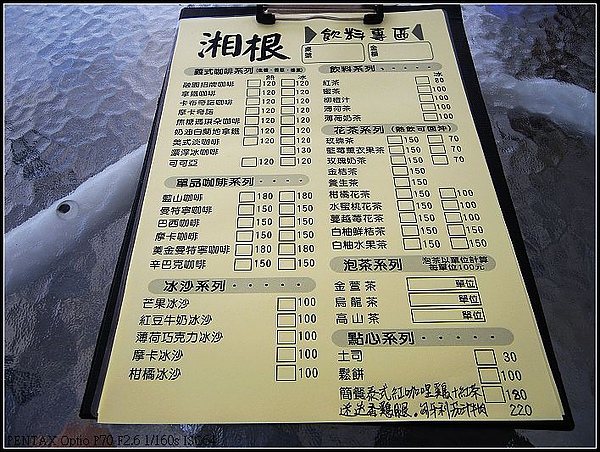 湘根 飲料專區
桌號 金額
義式咖啡系列
熱 冰
招牌咖啡 120 120
拿鐵咖啡 120 120
卡布奇諾咖啡 120 120
摩卡奇諾 120 120
焦糖瑪琪朵咖啡 120 120
奶油白蘭地拿鐵 120 120
美式淡咖啡 120 120
漂浮冰咖啡 130
可可亞 120 120
單品咖啡系列
藍山咖啡 180 180
曼特寧咖啡 150 150
巴西咖啡 150 150
摩卡咖啡 150 150
黃金曼特寧咖啡 150 150
辛巴克咖啡 150 150
冰沙系列
芒果冰沙 100
紅豆牛奶冰沙 100
薄荷巧克力冰沙 100
摩卡冰沙 100
柑橘冰沙 100
飲料系列
冰
紅茶 80
蜜茶 100
柳橙汁 100
薄荷茶 100
薄荷奶茶 100
花茶系列 (熱飲可回沖)
玫瑰茶 150 70
藍莓薰衣果茶 150 70
玫瑰奶茶 150 70
金桔茶 150
養生茶 150
柑橘花茶 150 100
水蜜桃花茶 150 100
蔓越莓花茶 150 150
白柚鮮桔茶 150 150
白柚水果茶 150 150
泡茶系列 泡茶以單位計算
每單位100元
金萱茶 單位
烏龍茶 單位
高山茶 單位
點心系列
土司 30
鬆餅 100
簡餐 泰式紅咖哩雞+紅茶 180
迷迭香雞腿。匈牙利 牛肉 220
PENTAX Optio P70 F2.6 1/160s ISO64